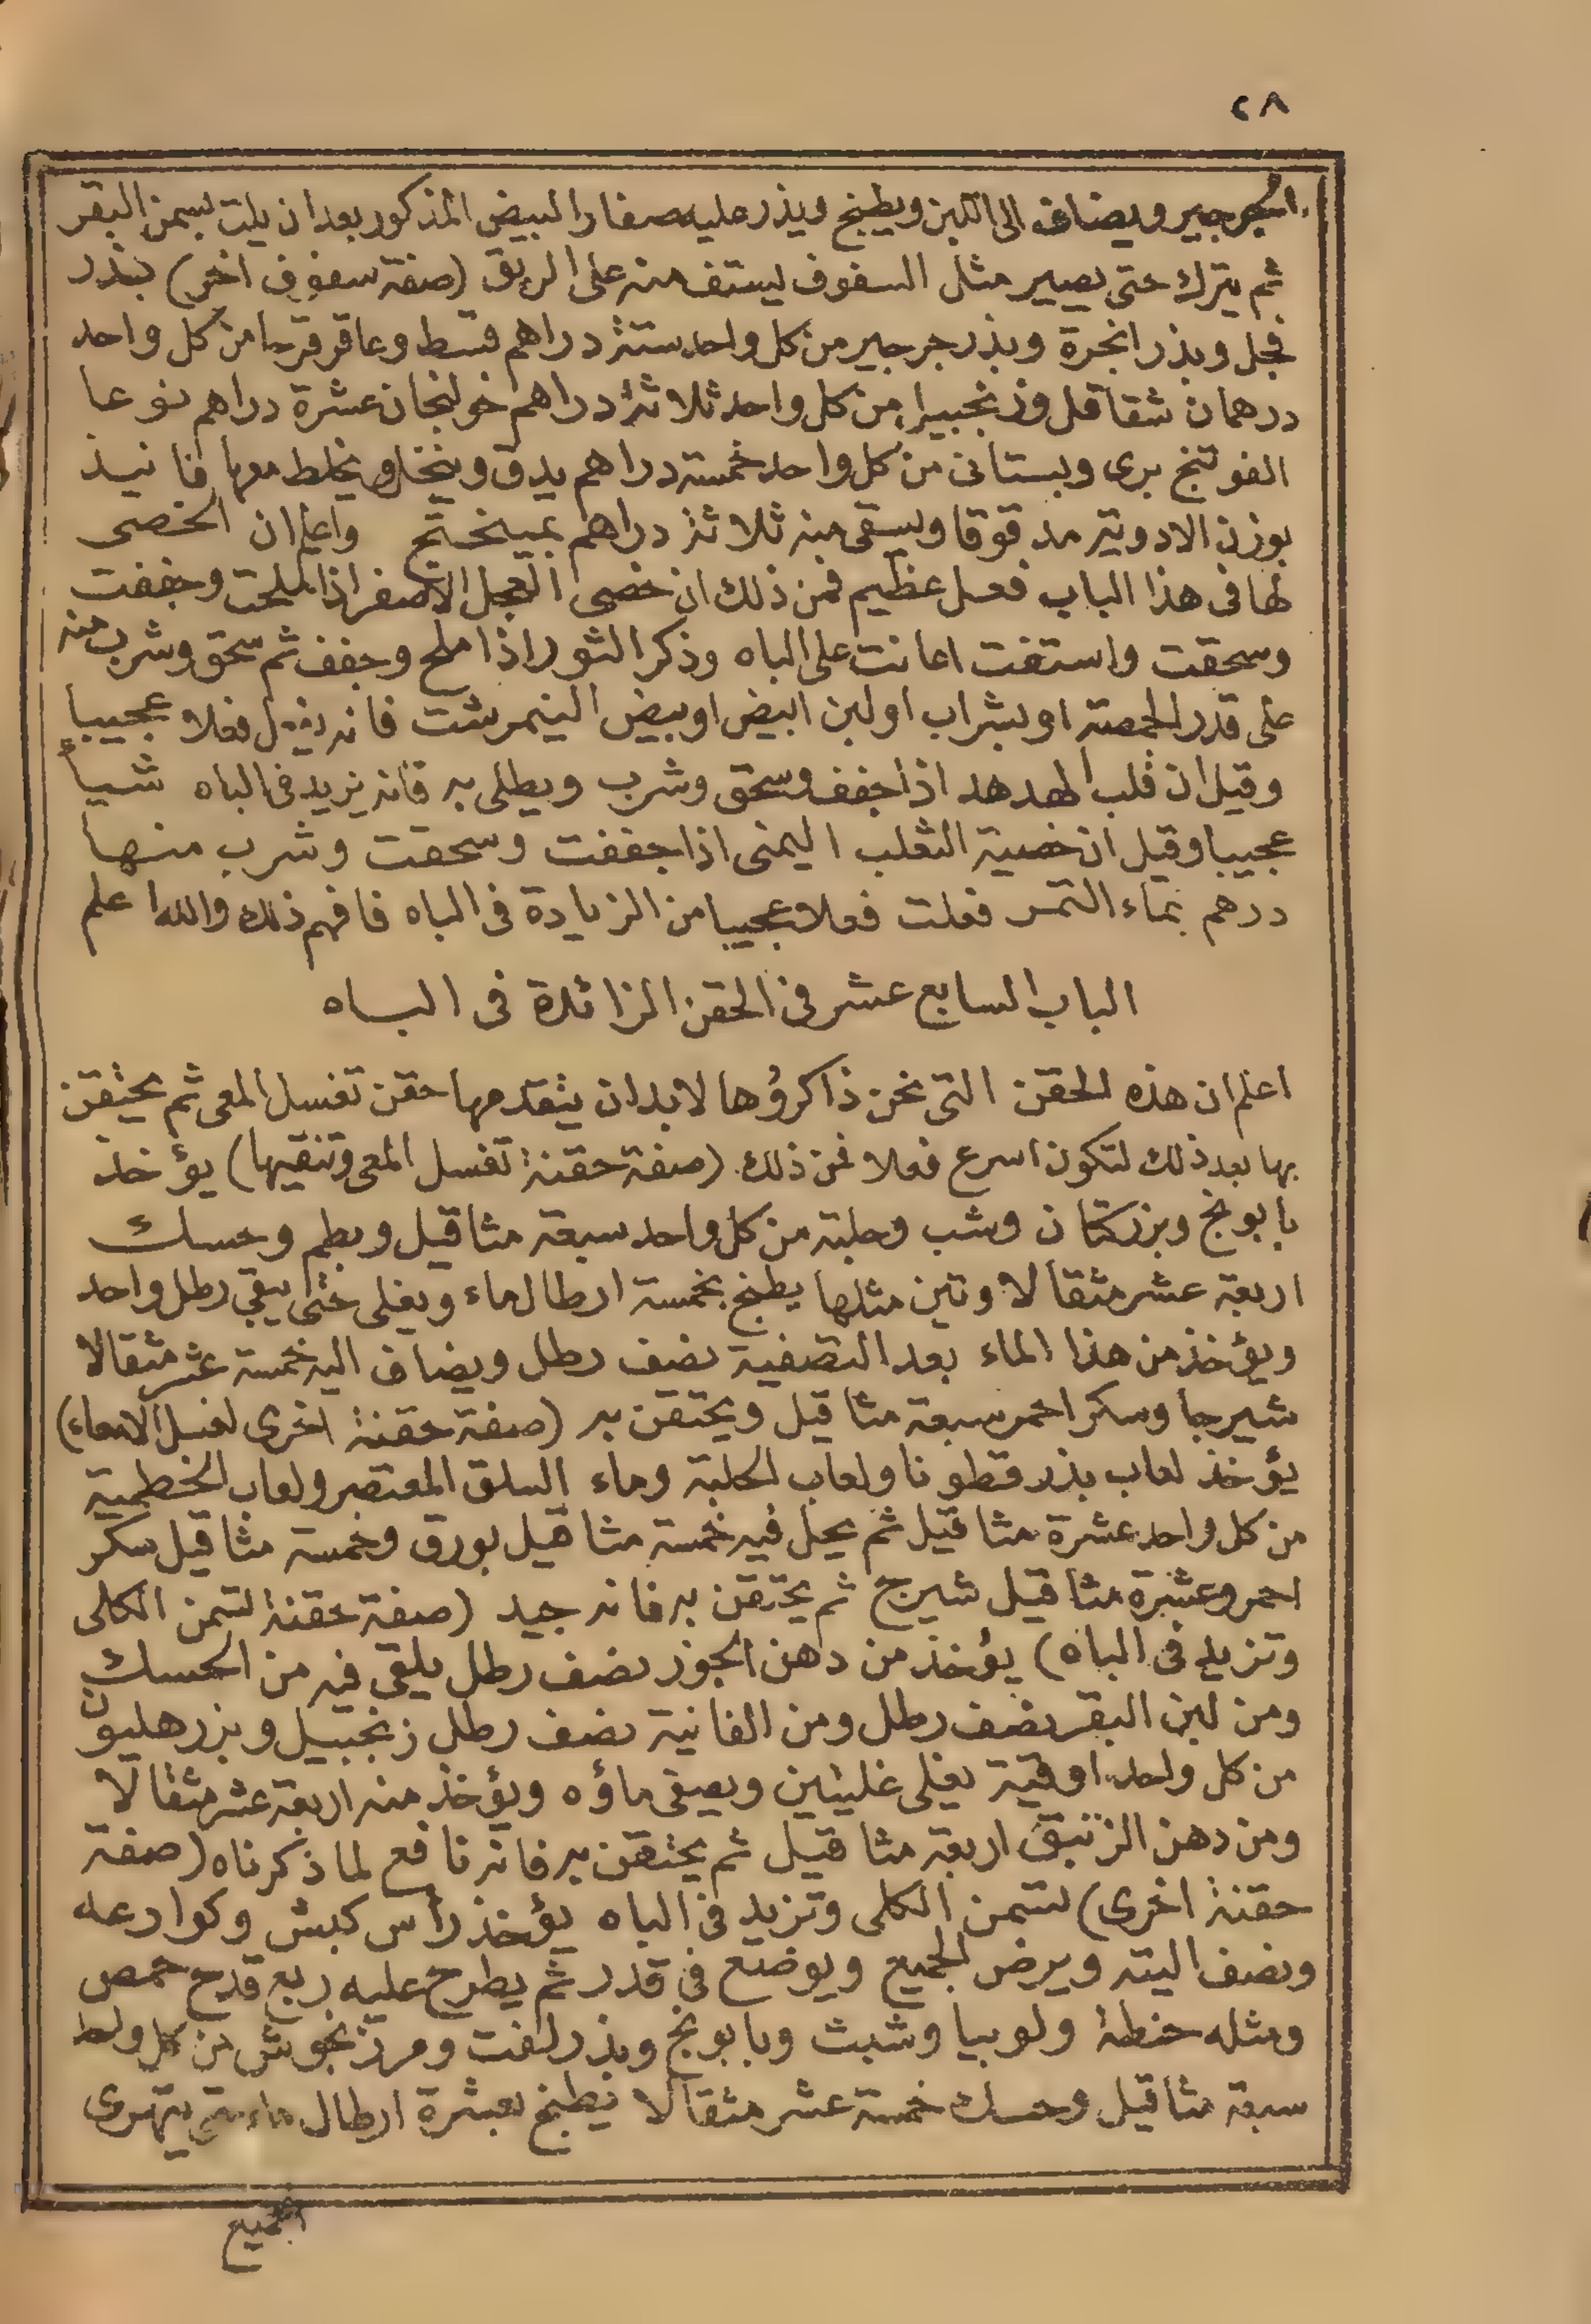 ٢٨
الجرجير ويضاف الى اللبن ويطبخ ويذر عليه صفار البيض المذكور بعد ان يلت بسمن البقر
ثم يترك حتى يصير مثل السفوف ليستف منه على الريق (صفة سفوف اخر) بذر
فجل وبذر انجرة وبذر جرجير من كل واحد ستة دراهم قسط وعاقر قرحا من كل واحد
درهمان شقاقل وزنجبيل من كل واحد ثلاثة دراهم خولنجان عشرة دراهم نوعا
الفوتنج برى وبستانى من كل واحد خمسة دراهم يدق وينخل ويخلط معها فانيذ
بوزن الادوية مدقوقا ويسقى منه ثلاثة دراهم بميبختج واعلم ان الخصى
لها فى هذا الباب فعل عظيم فمن ذلك ان خصى العجل الاصفر اذا ملحت وجففت
وسحقت واستفت اعانت على الباه وذكر الثور اذا ملح وجفف ثم سحق وشرب منه
على قدر الحمصة او بشراب او لبن ابيض او بيض النيمرشت فانه يفعل فعلا عجيبا
وقيل ان قلب الهدهد اذا جفف وسحق وشرب ويطلى به فانه يزيد فى الباه شيأ
عجيبا وقيل ان خصية الثعلب اليمنى اذا جففت وسحقت وشرب منها
درهم بماء التمر فعلت فعلا عجيبا من الزيادة فى الباه فافهم ذلك والله اعلم
الباب السابع عشر فى الحقن الزائدة فى الباه
اعلم ان هذه الحقن التى نحن ذاكرؤها لابد ان يتقدمها حقن تغسل المعى ثم يحتقن
بها بعد ذلك لتكون اسرع فعلا فمن ذلك (صفة حقنة تغسل المعى وتنقيها) يؤخذ
بابونج وبزركتان وشب وحلبة من كل واحد سبعة مثاقيل وبطم وحسك
اربعة عشر مثقالا وتين مثلها يطبخ بخمسة ارطال ماء ويغلى حتى يبقى رطل واحد
ويؤخذ من هذا الماء بعد التصفية نصف رطل ويضاف اليه خمسة عشر مثقالا
شيرجا وسكر احمر سبعة مثاقيل ويحتقن به (صفة حقنة اخرى لغسل الامعاء)
يؤخذ لعاب بذر قطونا ولعاب الحلبة وماء السلق المعتصر ولعاب الخطمية
من كل واحد عشرة مثاقيل ثم يحل فيه خمسة مثاقيل بورق وخمسة مثاقيل سكر
احمر وعشرة مثاقيل شيرج ثم يحتقن به فانه جيد (صفة حقنة لتسمن الكلى
وتزيد فى الباه) يؤخذ من دهن الجوز نصف رطل يلقى فيه من الحسك
ومن لبن البقر نصف رطل ومن الفانية نصف رطل زنجبيل وبزر هليون
من كل واحد اوقية يغلى غليتين ويصفى ماؤه ويؤخذ منه اربعة عشر مثقالا
ومن دهن الزنبق اربعة مثاقيل ثم يحتقن به فانه نافع لما ذكرناه (صفة
حقنة اخرى) لتسمن الكلى وتزيد فى الباه يؤخذ رأس كبش وكوارعه
ونصف اليته ويرض الجميع ويوضع فى قدر ثم يطرح عليه ربع قدح حمص
ومثله حنطة ولوبيا وشبث وبابونج وبذر لفت ومرزنجوش من كل واحد
سبعة مثاقيل وحسك خمسة عشر مثقالا يطبخ بعشرة ارطال ماء حتى يتهرى
الجميع